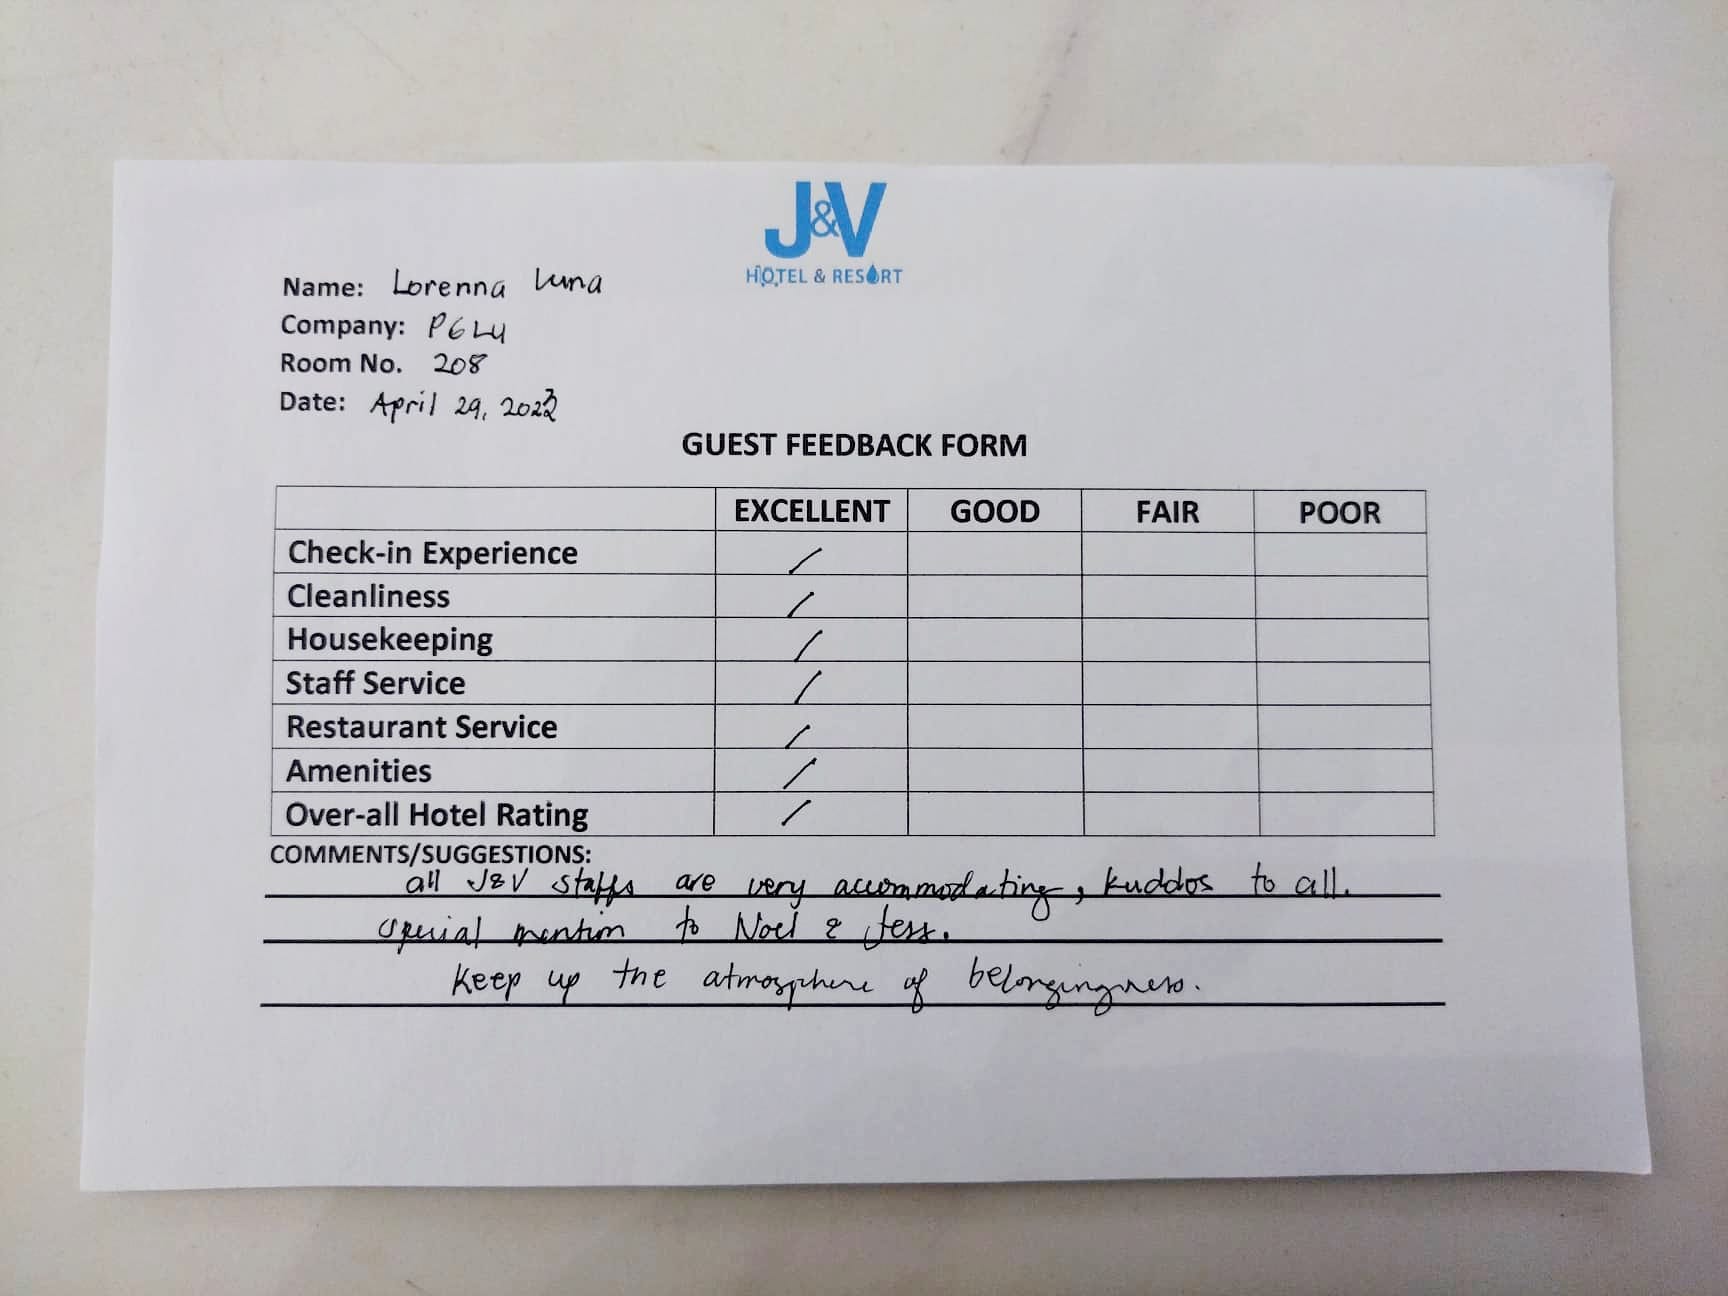 J&V
HOTEL & RESORT
Name: Lorenna Luna
Company: PGLU
Room No. 208
Date: April 29, 2023
GUEST FEEDBACK FORM
EXCELLENT GOOD FAIR POOR
Check-in Experience /
Cleanliness /
Housekeeping /
Staff Service /
Restaurant Service /
Amenities /
Over-all Hotel Rating /
COMMENTS/SUGGESTIONS:
all J&V staffs are very accommodating, kuddos to all.
special mention to Noel & Jess.
Keep up the atmosphere of belongingness.